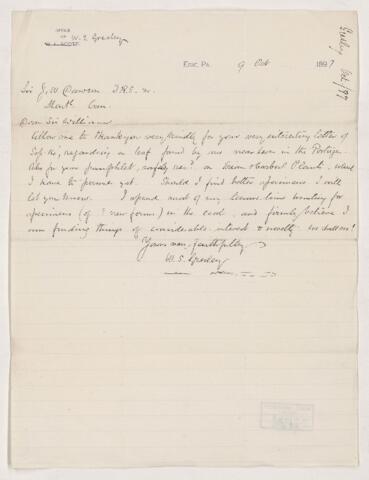 OFFICE
OF W. S. Gresley
W. L. SCOTT.
ERIE, PA. 9 Oct 1897
Gresley Oct/97
Sir J. W. Dawson F.R.S. &c.
Montl Can.
Dear Sir William
Allow me to thank you very kindly for your very interesting letter of
Sept regarding a leaf found by me
also for your pamphlet, safely recd on Carboni Plants, which
I have to peruse yet. Should I find better specimens I will
let you know. I spend most of my leisure time hunting for
specimens (of ? new forms) in the coal, and firmly believe I
am finding things of considerable interest & novelty. We shall see!
Yours very faithfully
W. S. Gresley